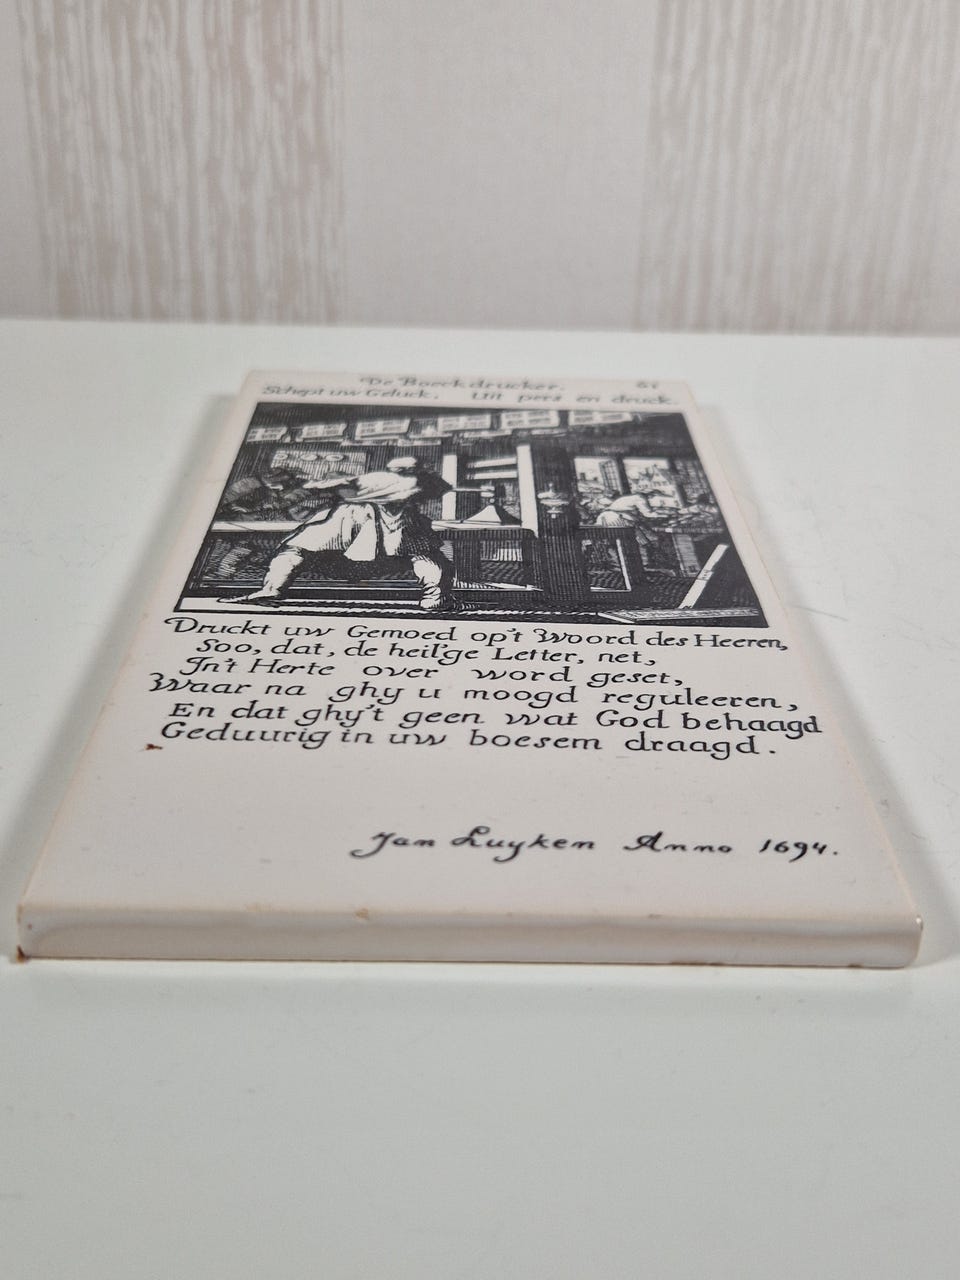 De Boeckdrucker. 61
Schept uw Geluck, Uit pers en druck.
Druckt uw Gemoed op't Woord des Heeren,
Soo, dat, de heil'ge Letter, net,
In't Herte over word geset,
Waar na ghy u moogd reguleeren,
En dat ghy't geen wat God behaagd
Geduurig in uw boesem draagd.
Jan Luyken Anno 1694.